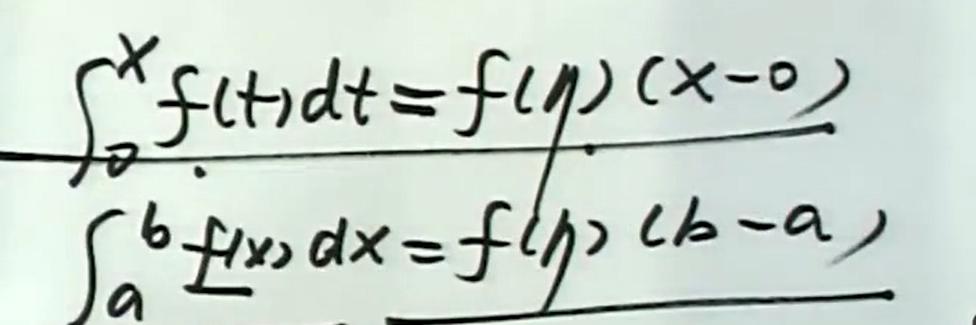 ∫₀ˣ f(t)dt = f(η)(x-0)
∫ₐᵇ f(x)dx = f(η)(b-a)